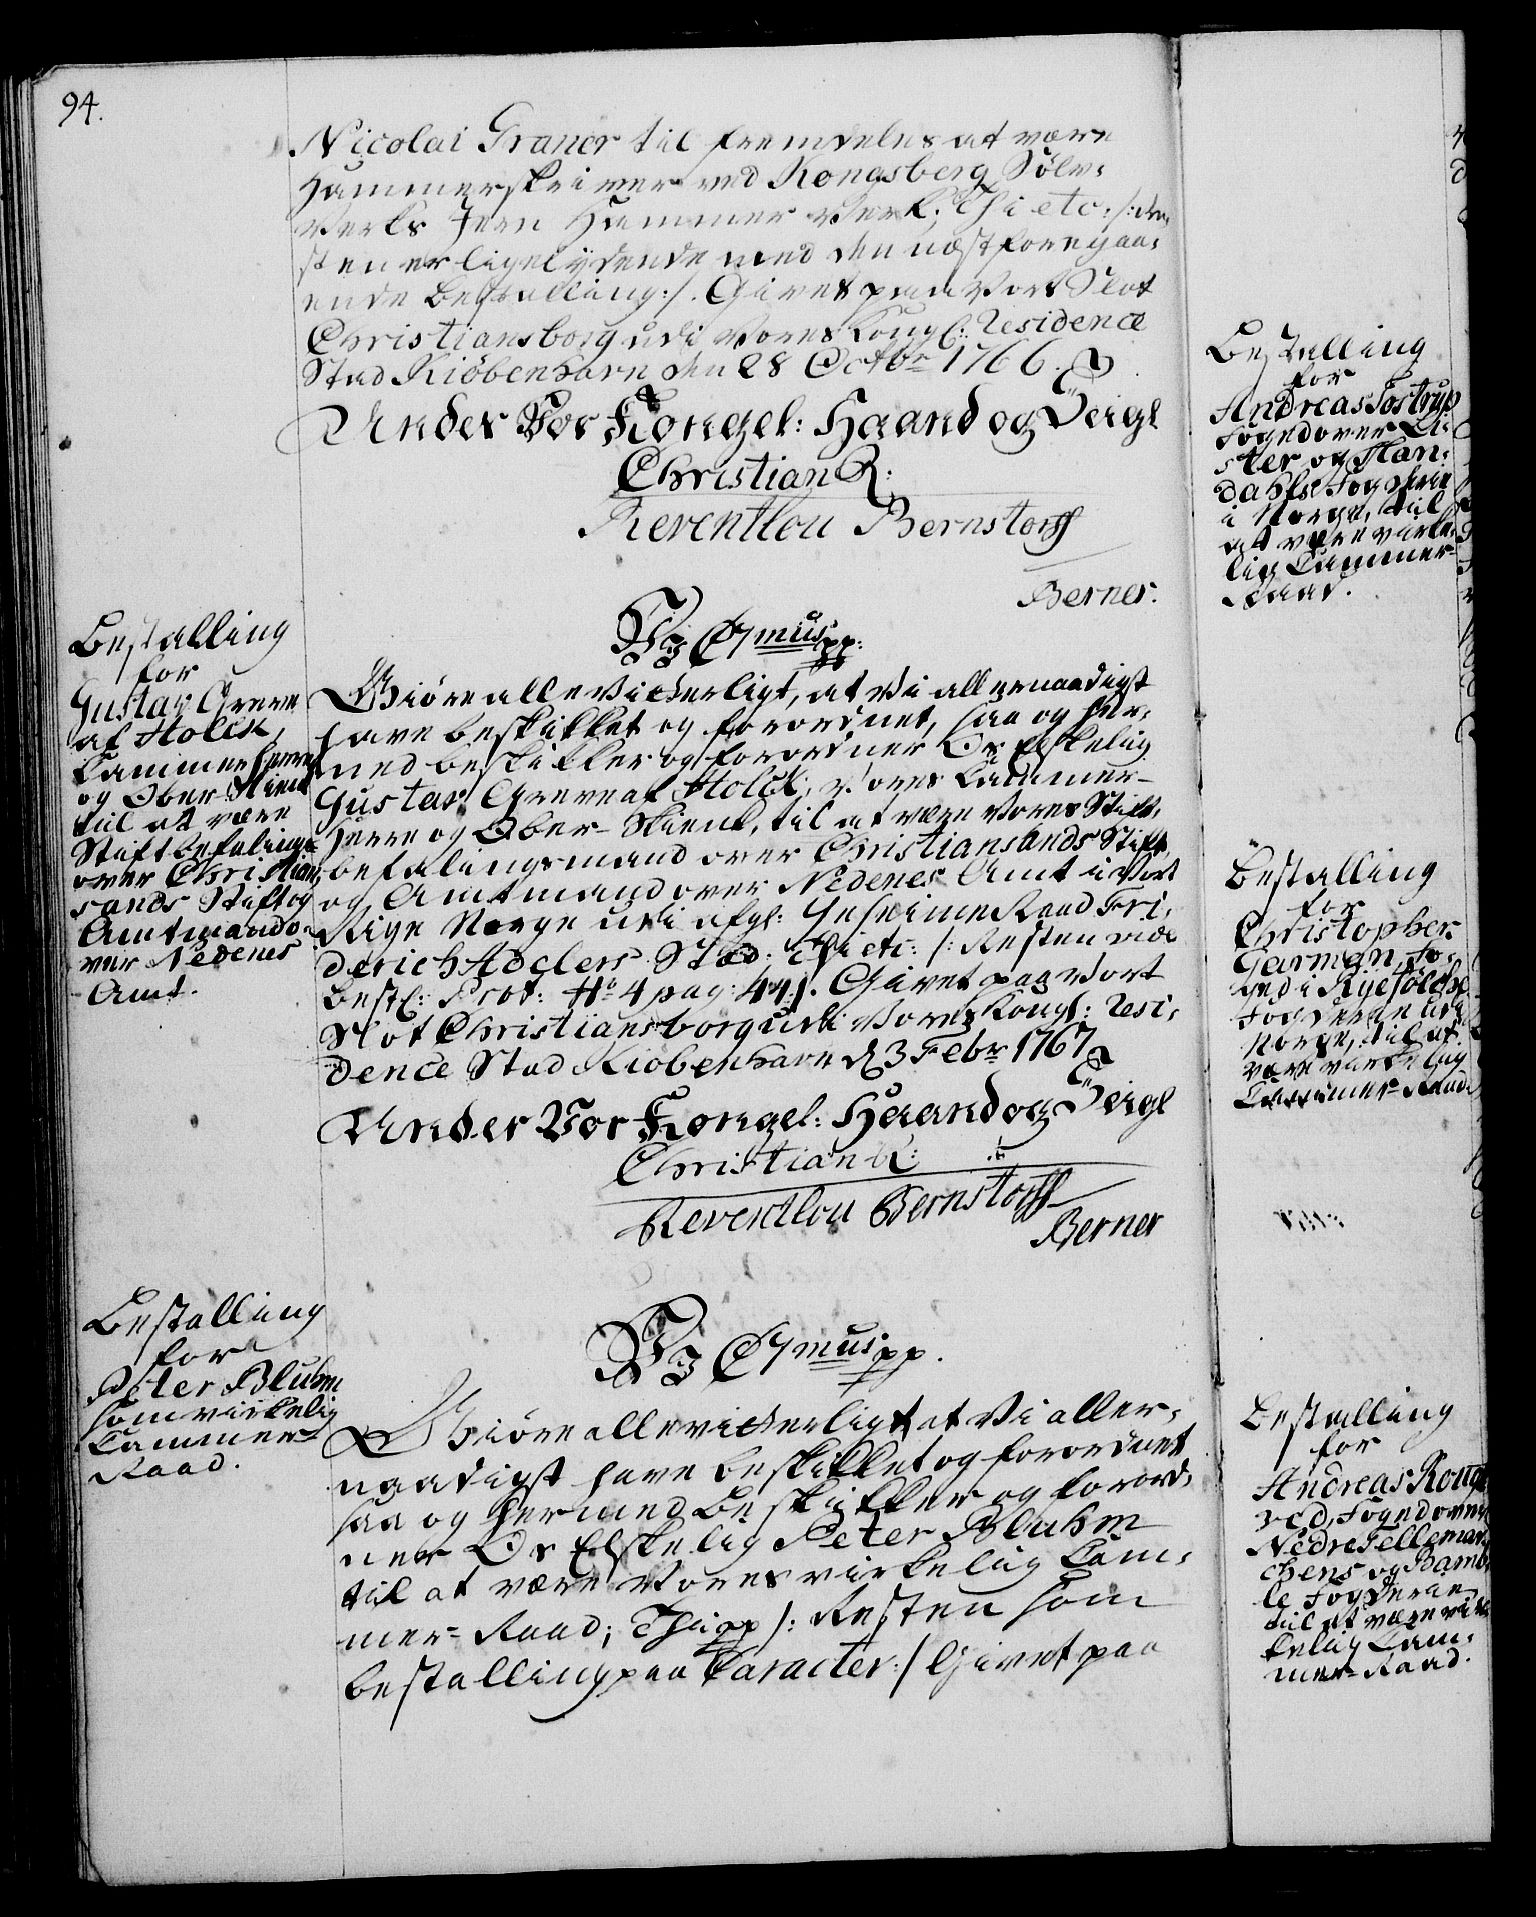 94.
Nicolai Graner til fremdeles at være
Hammerskriver ved Kongsberg Sölv-
Verks Jern Hammer Verk; Thi etc: /: Re-
sten er ligelydende med den næst foregaa-
ende Bestalling :/. Givet paa Vort Slot
Christiansborg udi Vores Kongl: Residence
Stad Kiöbenhavn den 28 Octobr 1766.
Under Vor Kongel: Haand og Seigl
Christian R:
Reventlou Bernstorff
Berner.
Bestalling
for
Gustav Greve
af Holck,
Cammerherre
og Ober-Skienk
til at være
Stiftbefalings-
over Christian-
sands Stift og
Amtmand o-
ver Nedenes
Amt.
Vj C7mus pp:
Giöre alle Vitterligt, at Vi allernaadigst
have beskikket og forordnet, saa og her-
med beskikker og forordner Os Elskelig
Gustav Greve af Holck, Vores Cammer-
Herre og Ober-Skienk, til at være Vores Stift-
befalingsmand over Christiansands Stift
og Amtmand over Nedenes Amt i Vort
Rige Norge udi afgl: Geheime Raad Fri-
derich Adelers Stæd. Thi etc: /: Resten vide
Best: Prot: No 4 pag: 44 :/. Givet paa Vort
Slot Christiansborg udi Vores Kongl: Resi-
dence Stad Kiöbenhavn d 3 Febr 1767
Under Vor Kongel: Haand og Seigl
Christian R:
Reventlou Bernstorff
Berner
Bestalling
for
Peter Bluhm
som virkelig
Cammer
Raad.
Vj C7mus pp.
Giöre alle vitterligt at Vi aller-
naadigst have beskikket og forordnet
saa og hermed beskikker og forord-
ner Os Elskelig Peter Bluhm
til at være Vores virkelig Cam-
mer-Raad; Thi pp /: Resten som
bestalling paa Caracter :/ Givet paa
Bestalling
for
Andreas Töstrup
Foged over Li-
ster og Man-
dahls Fogderie
i Norge, til
at være virke-
lig Cammer-
Raad.
Bestalling
for
Christopher
Garman, Fo-
ged i Ryefölcke
Fogderie udi
Norge, til at
være virkelig
Cammer-Raad
Bestalling
for
Andreas
Foged over
Nedre Tellemar-
chens og Bamb-
le Fogderie
til at være vir-
kelig Cam-
mer-Raad.